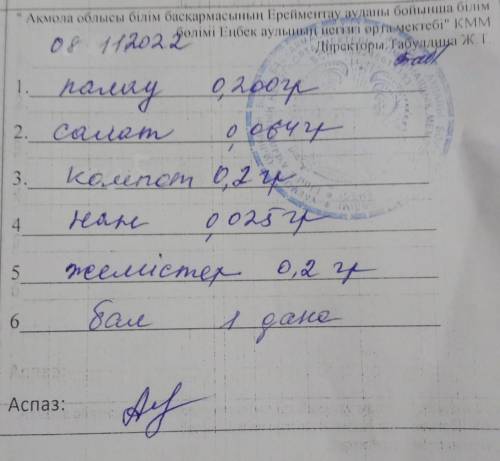 " Ақмола облысы білім басқармасының Ерейментау ауданы бойынша білім
бөлімі Еңбек ауылының негізгі орта мектебі" КММ
08 11 2022
Директоры Табулдина Ж. Г
1. палау 0,200гр
2. салат 0,064гр
3. компот 0,2 гр
4 нан 0,025 гр
5 жемістер 0,2 гр
6 бал 1 дана
Аспаз: